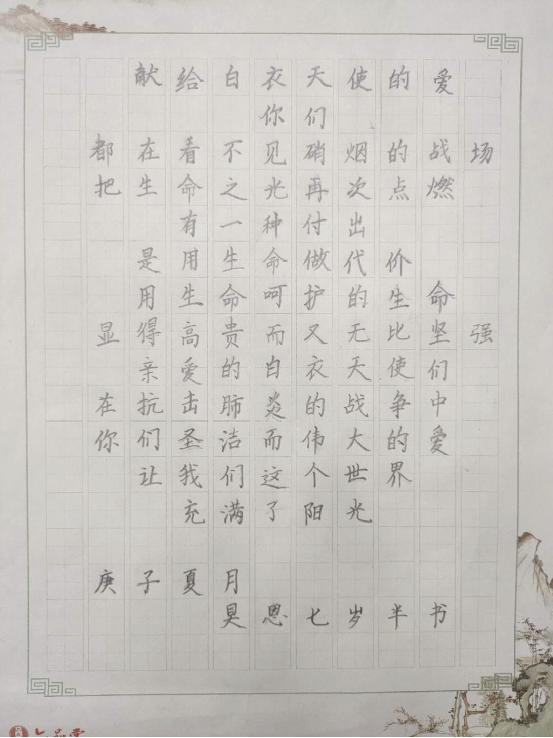 献给白衣天使的爱
你们
都在看不见硝烟的战场
把生命之光再次点燃
有一种付出
是用生命做代价
用生命呵护的生命
显得高贵而又无比坚强
亲爱的白衣天使们
在抗击肺炎的战争中
你们圣洁而伟大的爱
让我们这个世界
充满了阳光
庚子夏月
昊恩七岁半书